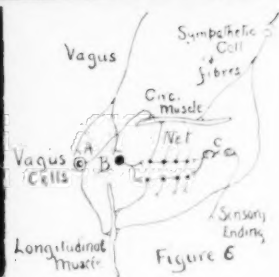 Sympathetic
Cell
& fibres
Vagus
Circ.
Muscle
Net
A
C
Vagus
Cells
B
Sensory
Ending
Longitudinal
Muscle
Figure 6